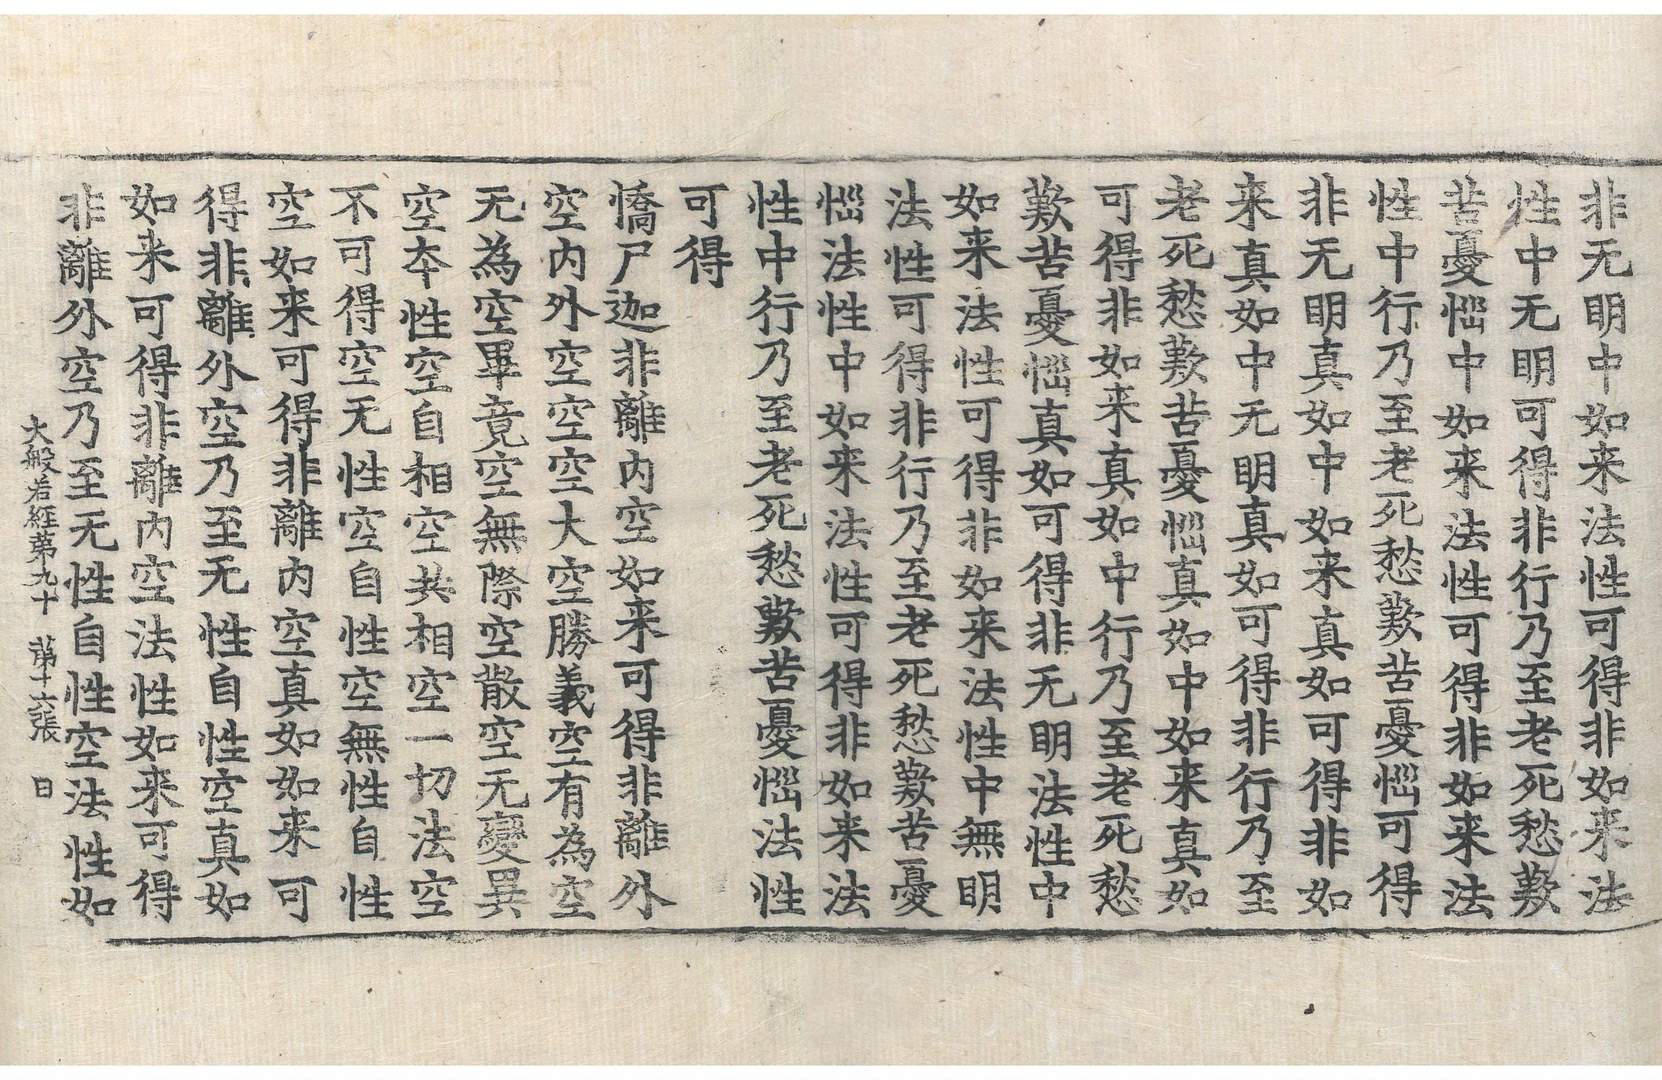 非无明中如来法性可得非如来法
性中无明可得非行乃至老死愁歎
苦憂惱中如来法性可得非如来法
性中行乃至老死愁歎苦憂惱可得
非无明真如中如来真如可得非如
来真如中无明真如可得非行乃至
老死愁歎苦憂惱真如中如来真如
可得非如来真如中行乃至老死愁
歎苦憂惱真如可得非无明法性中
如来法性可得非如来法性中無明
法性可得非行乃至老死愁歎苦憂
惱法性中如来法性可得非如来法
性中行乃至老死愁歎苦憂惱法性
可得
憍尸迦非離內空如来可得非離外
空內外空空空大空勝義空有為空
无為空畢竟空無際空散空无變異
空本性空自相空共相空一切法空
不可得空无性空自性空無性自性
空如来可得非離內空真如如来可
得非離外空乃至无性自性空真如
如来可得非離內空法性如来可得
非離外空乃至无性自性空法性如
大般若經第九十 第十六張 日